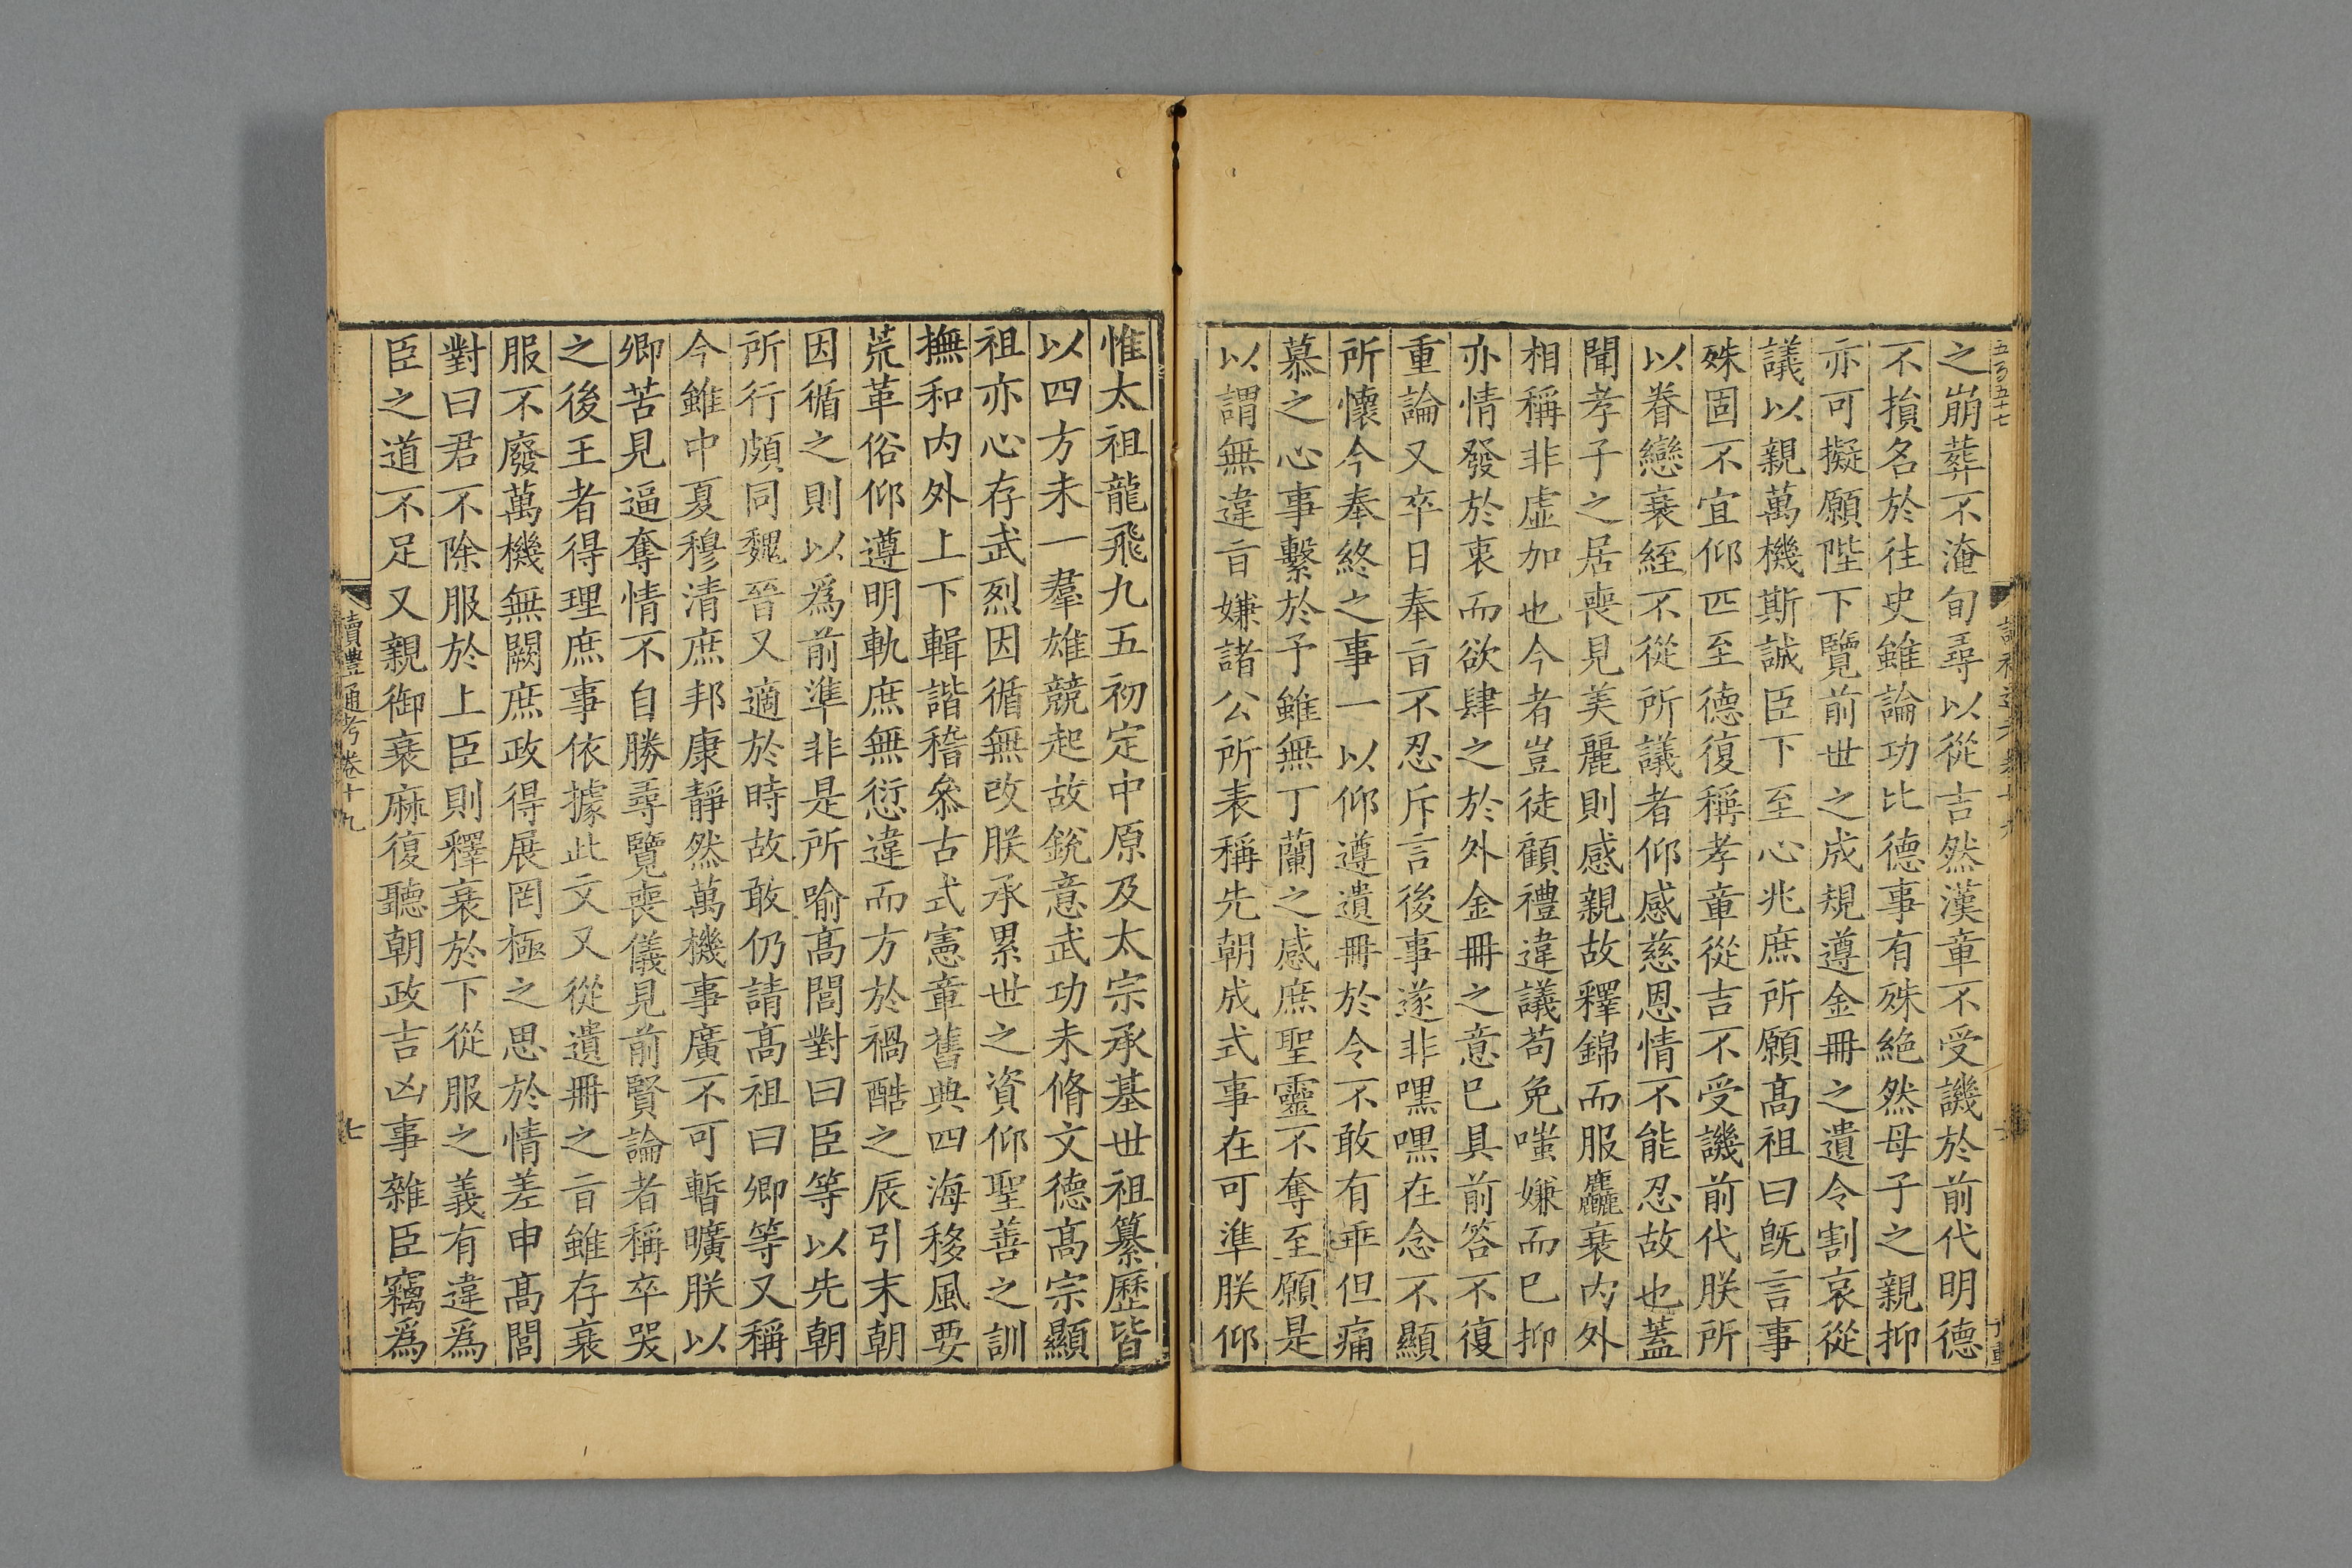 五百五十七
之崩葬不淹旬尋以從吉然漢章不受譏於前代明德
不損名於往史雖論功比德事有殊絶然母子之親抑
亦可擬願陛下覽前世之成規遵金冊之遺令割哀從
議以親萬機斯誠臣下至心兆庶所願髙祖曰旣言事
殊固不宜仰匹至德復稱孝章從吉不受譏前代朕所
以眷戀衰絰不從所議者仰感慈恩情不能忍故也蓋
聞孝子之居喪見美麗則感親故釋錦而服麤衰内外
相稱非虛加也今者豈徒顧禮違議苟免嗤嫌而已抑
亦情發於衷而欲肆之於外金冊之意巳具前答不復
重論又卒日奉㫖不忍斥言後事遂非嘿嘿在念不顯
所懷今奉終之事一以仰遵遺冊於令不敢有乖但痛
慕之心事繫於予雖無丁蘭之感庶聖靈不奪至願是
以謂無違㫖嫌諸公所表稱先朝成式事在可準朕仰
惟太祖龍飛九五初定中原及太宗承基世祖纂歷皆
以四方未一羣雄競起故銳意武功未脩文德髙宗顯
祖亦心存武烈因循無改朕承累世之資仰聖善之訓
撫和内外上下輯諧稽叅古式憲章舊典四海移風要
荒革俗仰遵明軌庶無愆違而方於禍酷之辰引末朝
因循之則以爲前準非是所喻髙閭對曰臣等以先朝
所行頗同魏晉又適於時故敢仍請髙祖曰卿等又稱
今雖中夏穆清庶邦康靜然萬機事廣不可暫曠朕以
卿苦見逼奪情不自勝尋覽喪儀見前賢論者稱卒哭
之後王者得理庶事依據此文又從遺冊之㫖雖存衰
服不廢萬機無闕庶政得展罔極之思於情差申髙閭
對曰君不除服於上臣則釋衰於下從服之義有違爲
臣之道不足又親御衰麻復聽朝政吉凶事雜臣竊爲
讀禮通考卷十九
七